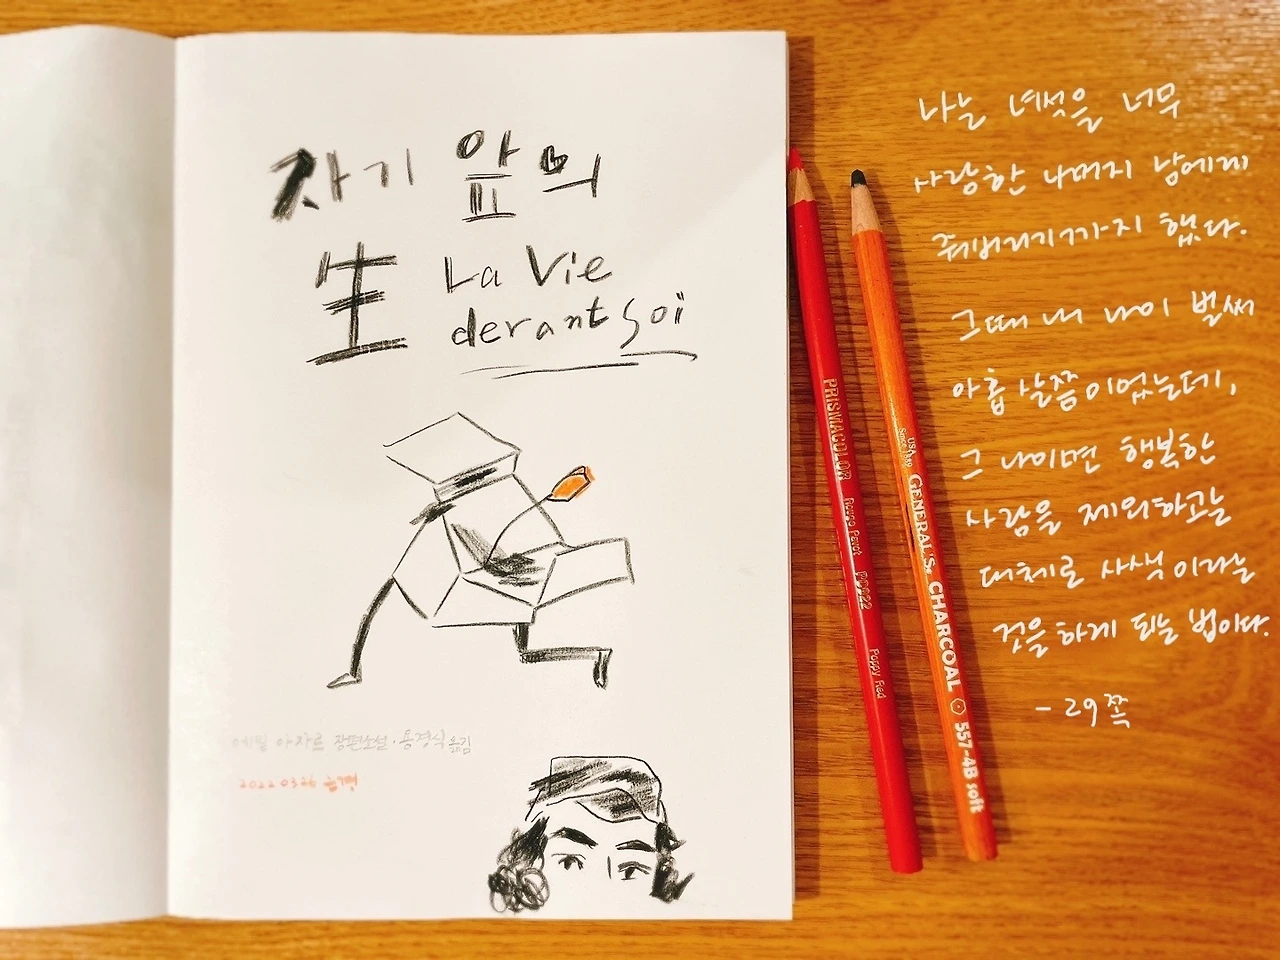 자기 앞의
生 La Vie
derant soi
에밀 아자르 장편소설·용경식 옮김
2022.03.26
PRISMACOLOR PC922 Poppy Red
USA Since 1889 GENERAL'S. CHARCOAL 557-4B soft
나는 녀석을 너무
사랑한 나머지 남에게
줘버리기까지 했다.
그때 내 나이 벌써
아홉 살쯤이었는데,
그 나이면 행복한
사람을 제외하고는
대체로 사색이라는
것을 하게 되는 법이다.
- 29쪽